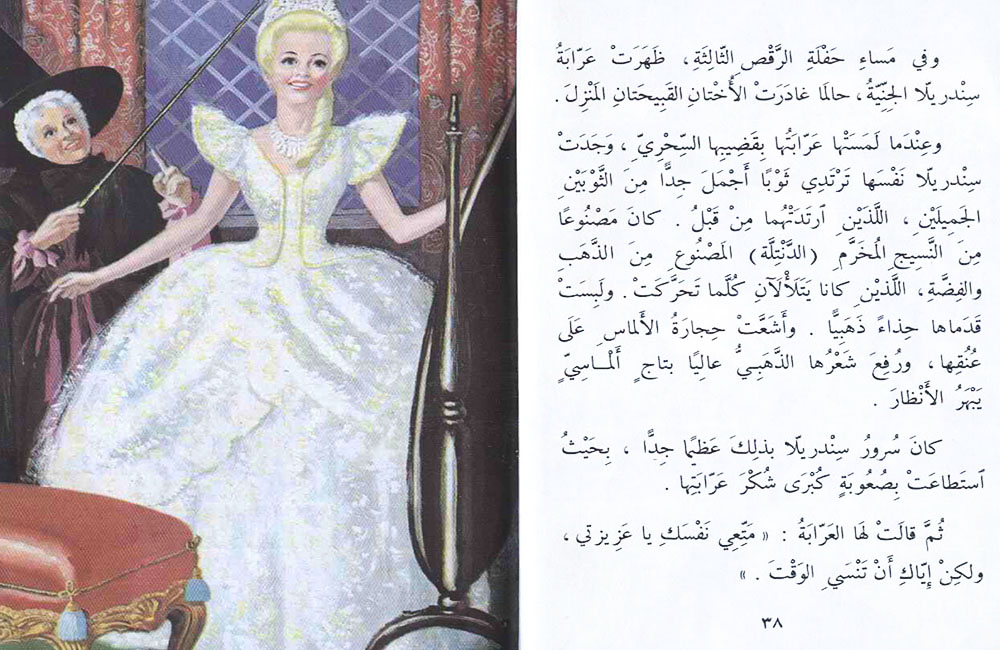 وفي مَساءِ حَفْلَةِ الرَّقْصِ الثّالِثَةِ، ظَهَرَتْ عَرّابَةُ
سِنْدريلّا الجِنِّيَّةُ، حالَمَا غادَرَتْ الأُخْتانِ القَبيحَتانِ المَنْزِلَ.
وعِنْدَما لَمَسَتْها عَرّابَتُها بِقَضِيبِها السِّحْرِيِّ، وَجَدَتْ
سِنْدريلّا نَفْسَها تَرْتَدِي ثَوْبًا أَجْمَلَ جِدًّا مِنَ الثَّوْبَيْنِ
الجَميلَيْنِ، اللَّذَيْنِ ٱرتَدَتْهُما مِنْ قَبْلُ. كانَ مَصْنُوعًا
مِنَ النَّسِيجِ المُخَرَّمِ (الدَّنْتِلَّة) المَصْنُوعِ مِنَ الذَّهَبِ
والفِضَّةِ، اللَّذَيْنِ كانا يَتَلَأْلَآنِ كُلَّما تَحَرَّكَتْ. ولَبِسَتْ
قَدَماها حِذاءً ذَهَبِيًّا. وأَشَعَّتْ حِجارَةُ الأَلماسِ عَلَى
عُنُقِها، ورُفِعَ شَعْرُها الذَّهَبِيُّ عالِيًا بِتاجٍ أَلْمـاسِيٍّ
يَبْهَرُ الأَنْظارَ.
كانَ سُرورُ سِنْدريلّا بذلِكَ عَظِيمًا جِدًّا، بِحَيْثُ
ٱستَطاعَت بِصُعُوبَةٍ كُبْرَى شُكْرَ عَرّابَتِها.
ثُمَّ قالَتْ لَها العَرّابَةُ: « مَتِّعِي نَفْسَكِ يا عَزِيزتي،
ولكِنْ إيّاكِ أَنْ تَنْسَيِ الوَقْتَ. »
٣٨